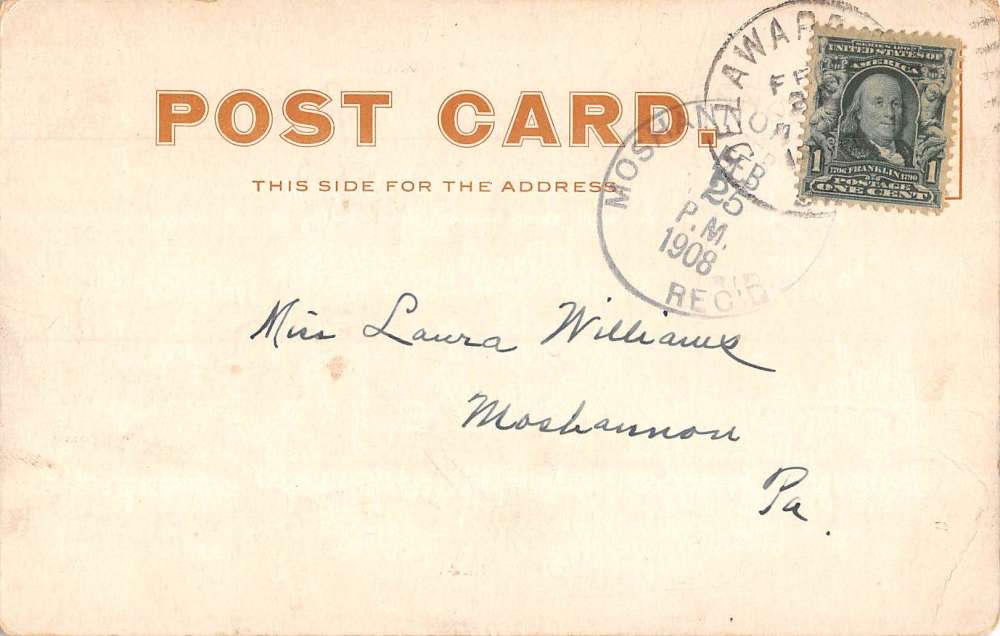 POST CARD.
THIS SIDE FOR THE ADDRESS
DELAWARE
FEB
SERIES 1902
UNITED STATES OF
AMERICA
1 1
1706 FRANKLIN 1790
POSTAGE
ONE CENT
MOSHANNON
FEB
25
P.M.
1908
REC'D
Miss Laura Williams
Moshannon
Pa.